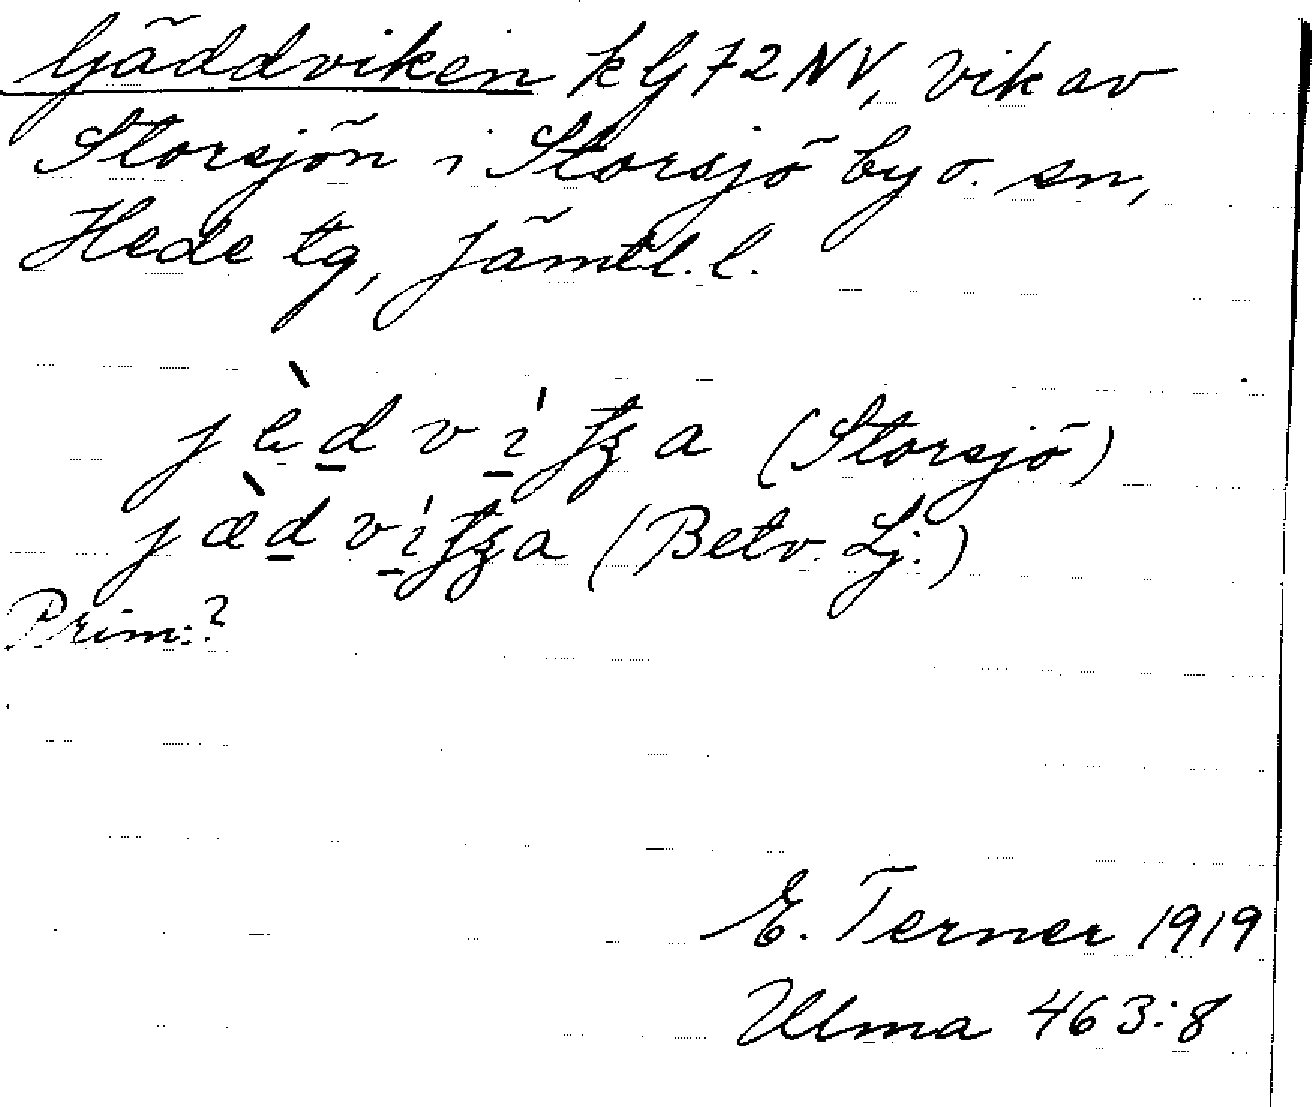 Gäddviken k G 72 NV, vik av
Storsjön i Storsjö by o. sn,
Hede tg, Jämtl. l.
(Storsjö)
(Betv. Lj.)
Prim:?
E. Terner 1919
Ulma 463:8